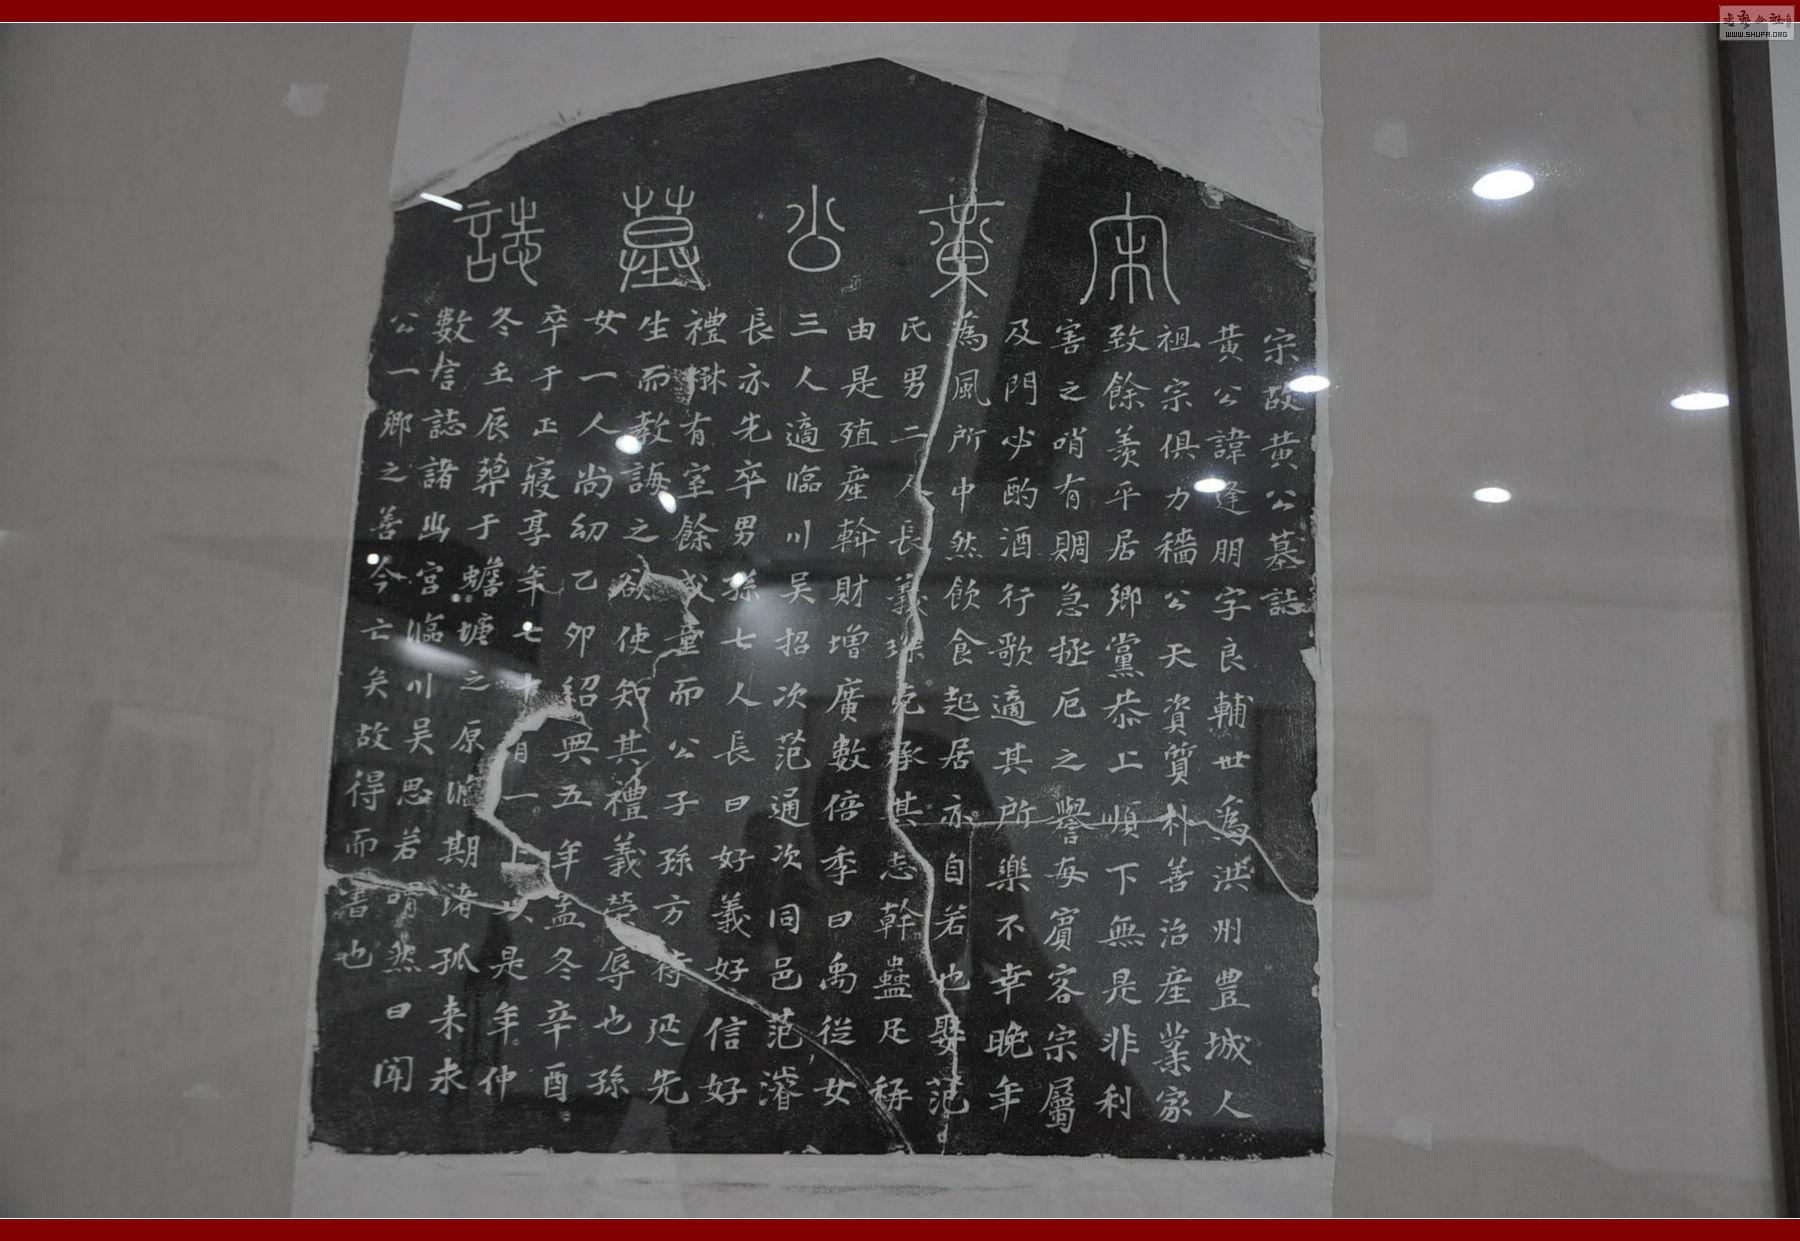 宋黃公墓誌
宋故黃公墓誌
黃公諱逢朋字良輔世為洪州豐城人
祖宗俱力穡公天資質朴善治產業家
致餘羨平居鄉黨恭上順下無是非利
害之哨有賙急拯厄之譽每賓客宗屬
及門必酌酒行歌適其所樂不幸晚年
為風所中然飲食起居亦自若也娶范
氏男二人長義琮克承其志幹蠱足稱
由是殖產斡財增廣數倍季曰禹從女
三人適臨川吳招次范通次同邑范濬
長亦先卒男孫七人長曰好義好信好
禮楙有室餘或童而公子孫方待延先
生而教誨之欲使知其禮義榮辱也孫
女一人尚幼乙卯紹興五年孟冬辛酉
卒于正寢享年七十有一以是年仲
冬壬辰葬于蟾塘之原瀹期諸孤来求
數信誌諸幽宮臨川吳思若喟然曰聞
公一鄉之善今亡矣故得而書也
WWW.SHUFA.ORG